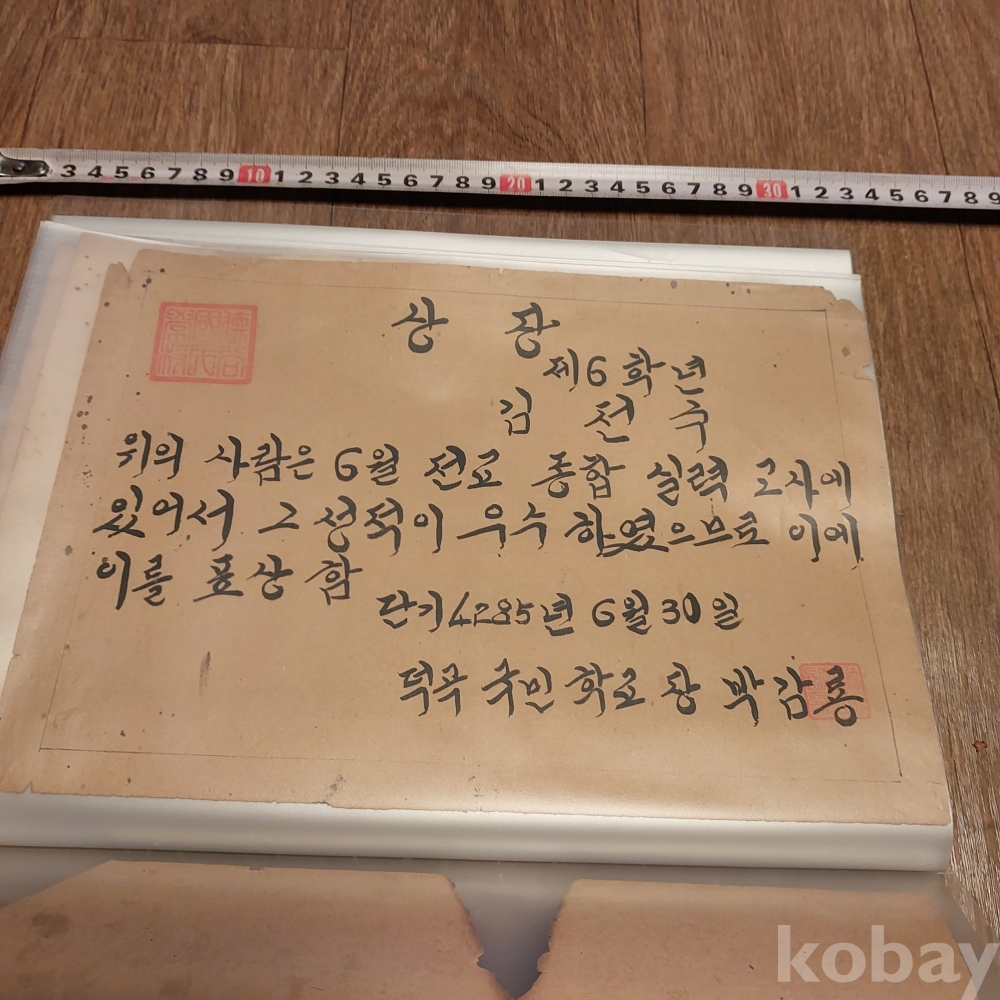 3 4 5 6 7 8 9 10 1 2 3 4 5 6 7 8 9 20 1 2 3 4 5 6 7 8 9 30 1 2 3 4 5 6 7 8 9
상 장
제6학년
김 선수
위의 사람은 6월 전교 종합 실력 고사에
있어서 그 성적이 우수 하였으므로 이에
이를 표상 함
단기4285년 6월 30일
덕곡 국민 학교 장 박감룡
kobay